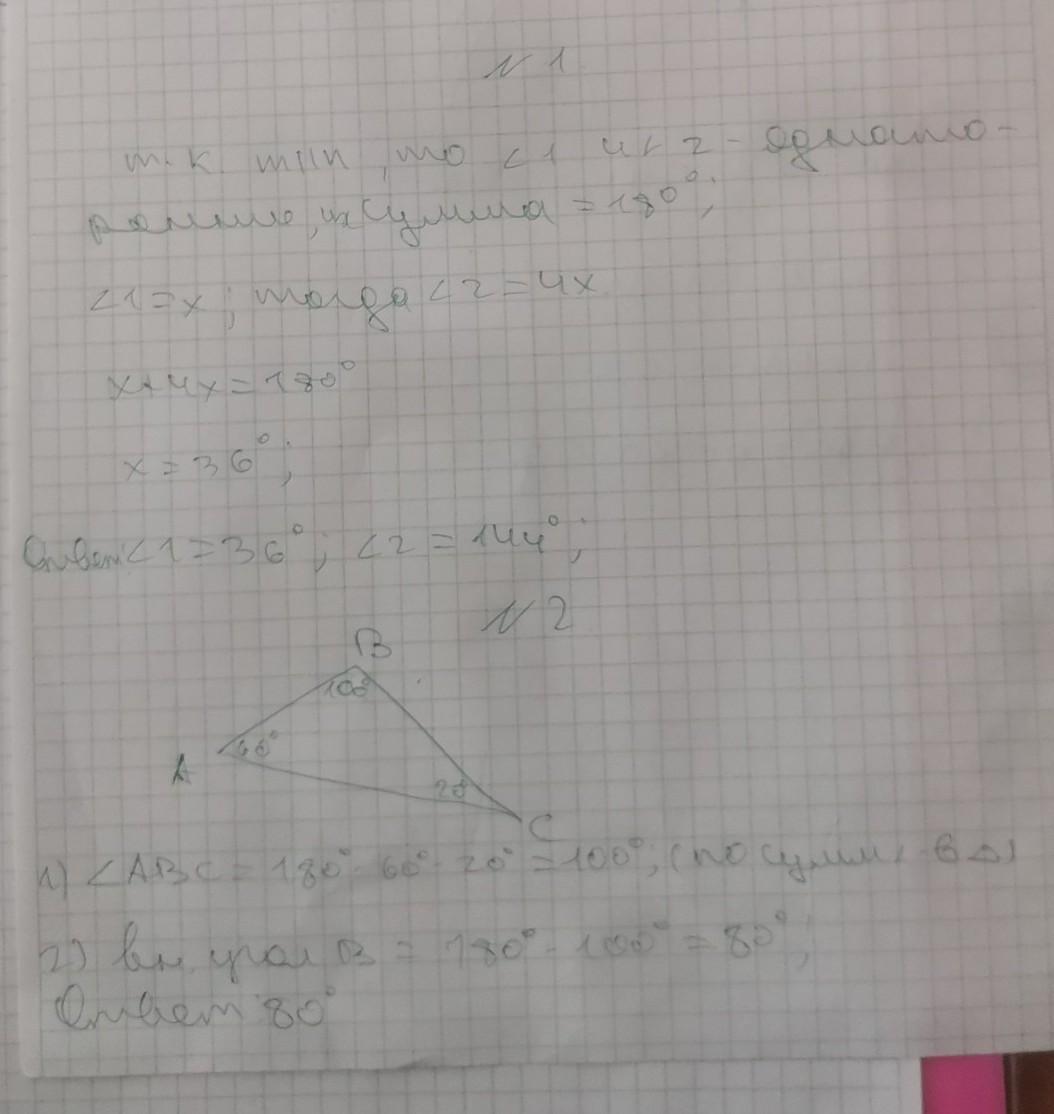 N 1
т.к. m||n, то ∠1 и ∠2 - односто-
ронние, их сумма = 180°;
∠1 = x; тогда ∠2 = 4x
x + 4x = 180°
x = 36°;
Ответ ∠1 = 36°; ∠2 = 144°;
N 2
B
100°
A
60°
20°
C
1) ∠ABC = 180° - 60° - 20° = 100°; (по сумм ∠ в △)
2) вн. угол B = 180° - 100° = 80°;
Ответ 80°